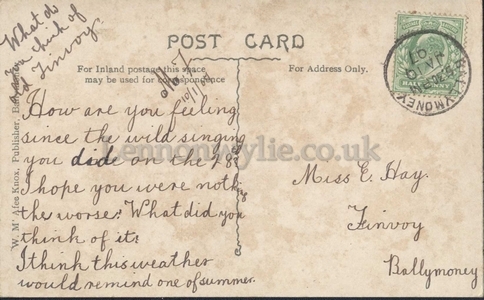 What do
you think of
Finvoy
POST CARD
For Inland postage this space
may be used for correspondence
For Address Only.
10/1/07
W. M'Afee Knox, Publisher,
HALFPENNY
BALLYMONEY
JA 10
07
How are you feeling
since the wild singing
you dide on the 28th
I hope you were noth
the worse: What did you
think of it:
I think this weather
would remind one of summer.
Miss E. Hay.
Finvoy
Ballymoney
Lennonwylie.co.uk